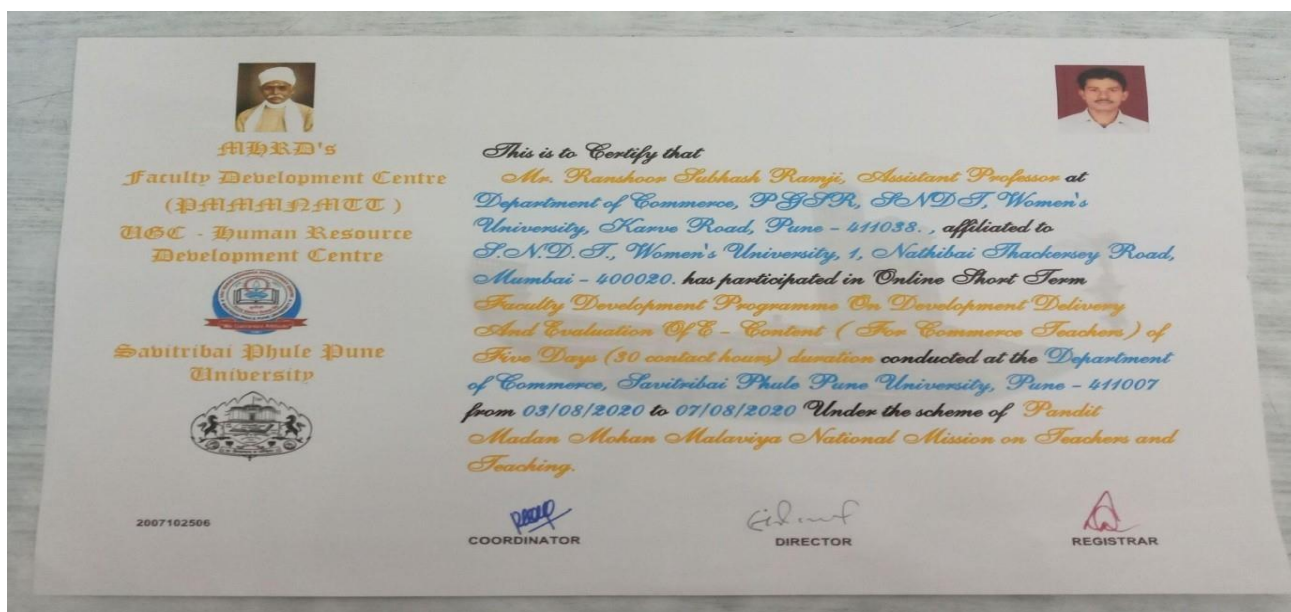 MHRD's
Faculty Development Centre
(PMMMNMTT )
UGC - Human Resource
Development Centre
Savitribai Phule Pune
University
2007102506
This is to Certify that
Mr. Ranshoor Subhash Ramji, Assistant Professor at
Department of Commerce, PGSR, SNDT, Women's
University, Karve Road, Pune - 411038. , affiliated to
S.N.D.T., Women's University, 1, Nathibai Thackersey Road,
Mumbai - 400020. has participated in Online Short Term
Faculty Development Programme On Development Delivery
And Evaluation Of E - Content ( For Commerce Teachers ) of
Five Days (30 contact hours) duration conducted at the Department
of Commerce, Savitribai Phule Pune University, Pune - 411007
from 03/08/2020 to 07/08/2020 Under the scheme of Pandit
Madan Mohan Malaviya National Mission on Teachers and
Teaching.
COORDINATOR
DIRECTOR
REGISTRAR